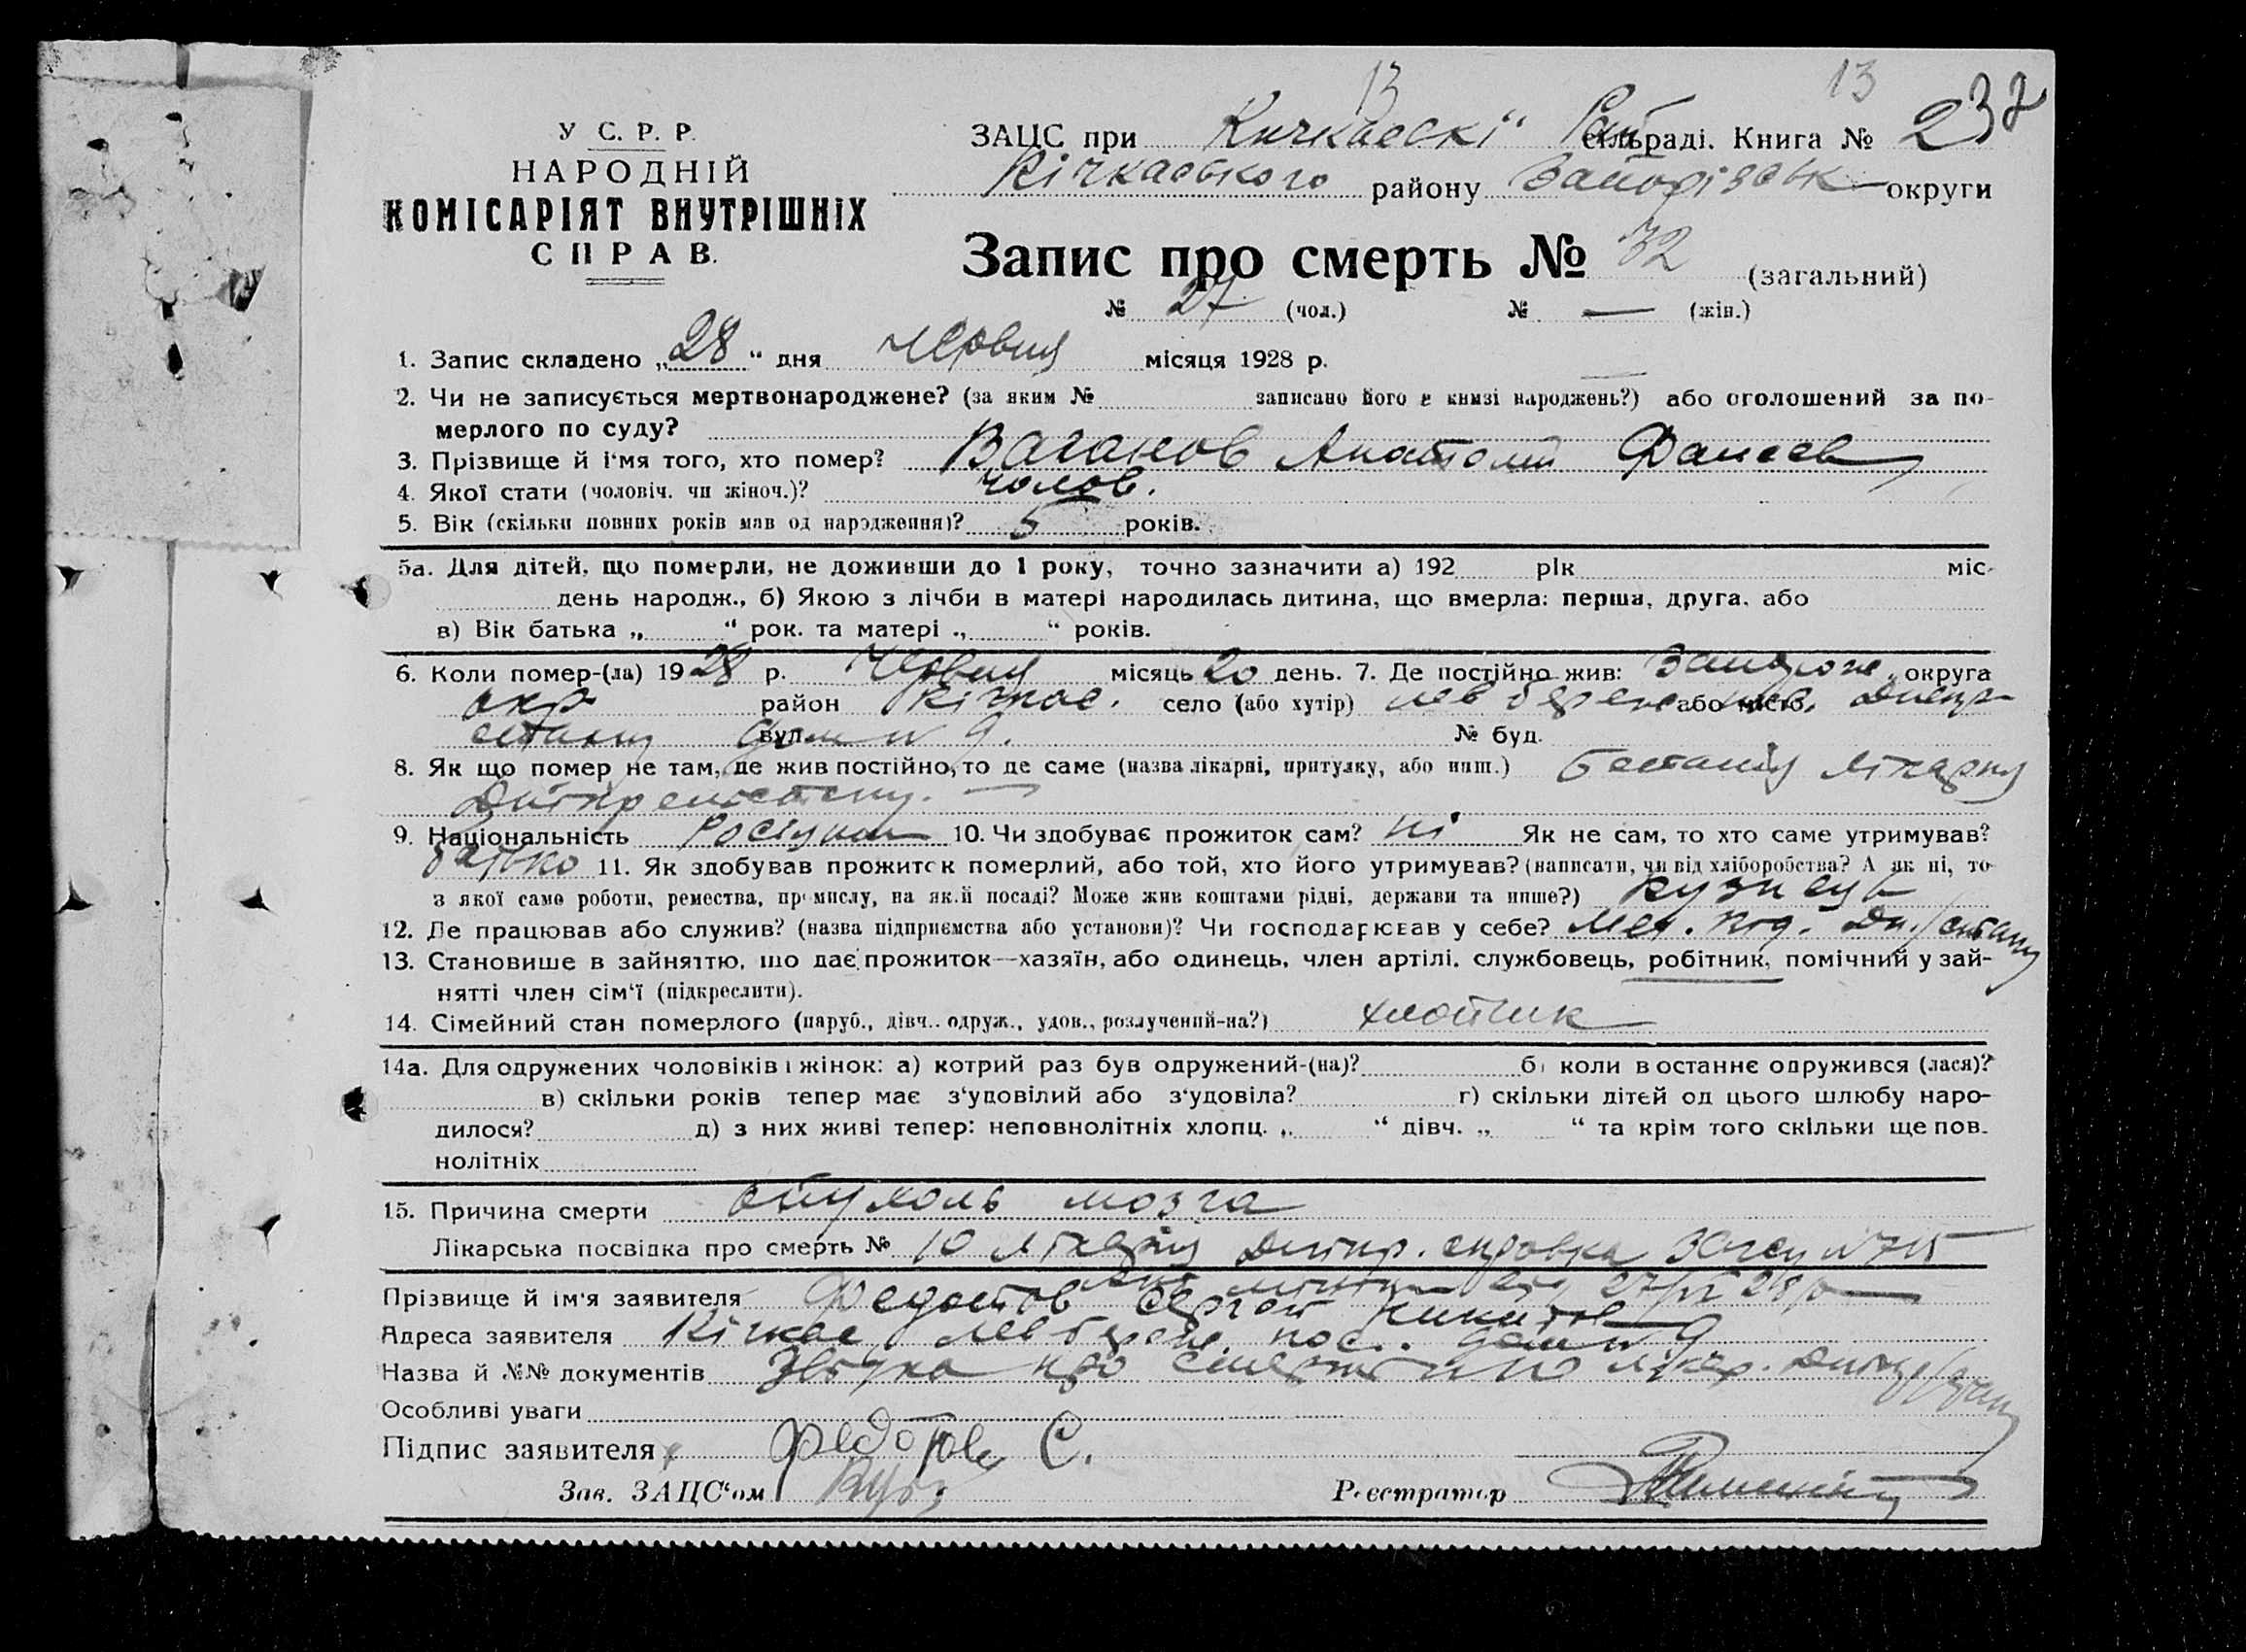 13 13
У С. Р. Р.
НАРОДНІЙ
КОМІСАРІЯТ ВНУТРІШНІХ
СПРАВ.
ЗАЦС при Кичкаескі сільраді. Книга № 237
Кічкаського району Запорізьк округи
Запис про смерть № 32 (загальний)
№ 27 (чол.) № — (жін.)
1. Запис складено „28“ дня червня місяця 1928 р.
2. Чи не записується мертвонароджене? (за яким № записано його в книзі народжень?) або оголошений за по-
мерлого по суду?
3. Прізвище й і'мя того, хто помер? Ваганов Анатолий
4. Якої стати (чоловіч. чи жіноч.)? чолов.
5. Вік (скільки повних років мав од народження)? 5 років.
5а. Для дітей, що померли, не доживши до 1 року, точно зазначити а) 192 рік міс.
день народж., б) Якою з лічби в матері народилась дитина, що вмерла: перша, друга, або
в) Вік батька „ “ рок. та матері „ “ років.
6. Коли помер-(ла) 1928 р. Червня місяць 20 день. 7. Де постійно жив: округа
окр район Кічкас. село (або хутір) або місто
вул. дом № 9. № буд.
8. Як що помер не там, де жив постійно, то де саме (назва лікарні, притулку, або инш.) лікарня
9. Національність 10. Чи здобуває прожиток сам? ні Як не сам, то хто саме утримував?
батько 11. Як здобував прожиток померлий, або той, хто його утримував? (написати, чи від хліборобства? А як ні, то
з якої саме роботи, ремества, промислу, на якій посаді? Може жив коштами рідні, держави та инше?)
12. Де працював або служив? (назва підприємства або установи)? Чи господарював у себе?
13. Становише в зайняттю, що дає прожиток—хазяїн, або одинець, член артілі, службовець, робітник, помічний у зай-
нятті член сім'ї (підкреслити).
14. Сімейний стан померлого (паруб., дівч., одруж., удов., розлучений-на?) хлопчик
14а. Для одружених чоловіків і жінок: а) котрий раз був одружений-(на)? б) коли в останнє одружився (лася)?
в) скільки років тепер має з'удовілий або з'удовіла? г) скільки дітей од цього шлюбу наро-
дилося? д) з них живі тепер: неповнолітніх хлопц. „ “ дівч. „ “ та крім того скільки ще пов-
нолітніх
15. Причина смерти опухоль мозга
Лікарська посвідка про смерть № 10 справка
27/VI 28 р
Прізвище й ім'я заявителя Федотов Сергей
Адреса заявителя Кічкас пос. дом № 9
Назва й №№ документів про
Особливі уваги
Підпис заявителя Федотов С.
Зав. ЗАЦС'ом Реєстратор